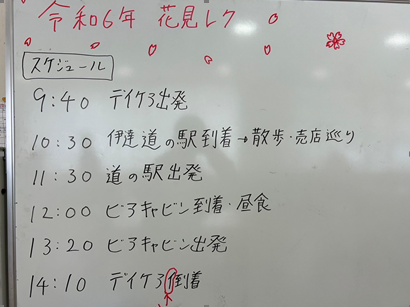 令和6年 花見レク
スケジュール
9:40 デイケア出発
10:30 伊達道の駅到着→散歩・売店巡り
11:30 道の駅出発
12:00 ビアキャビン到着・昼食
13:20 ビアキャビン出発
14:10 デイケア到着